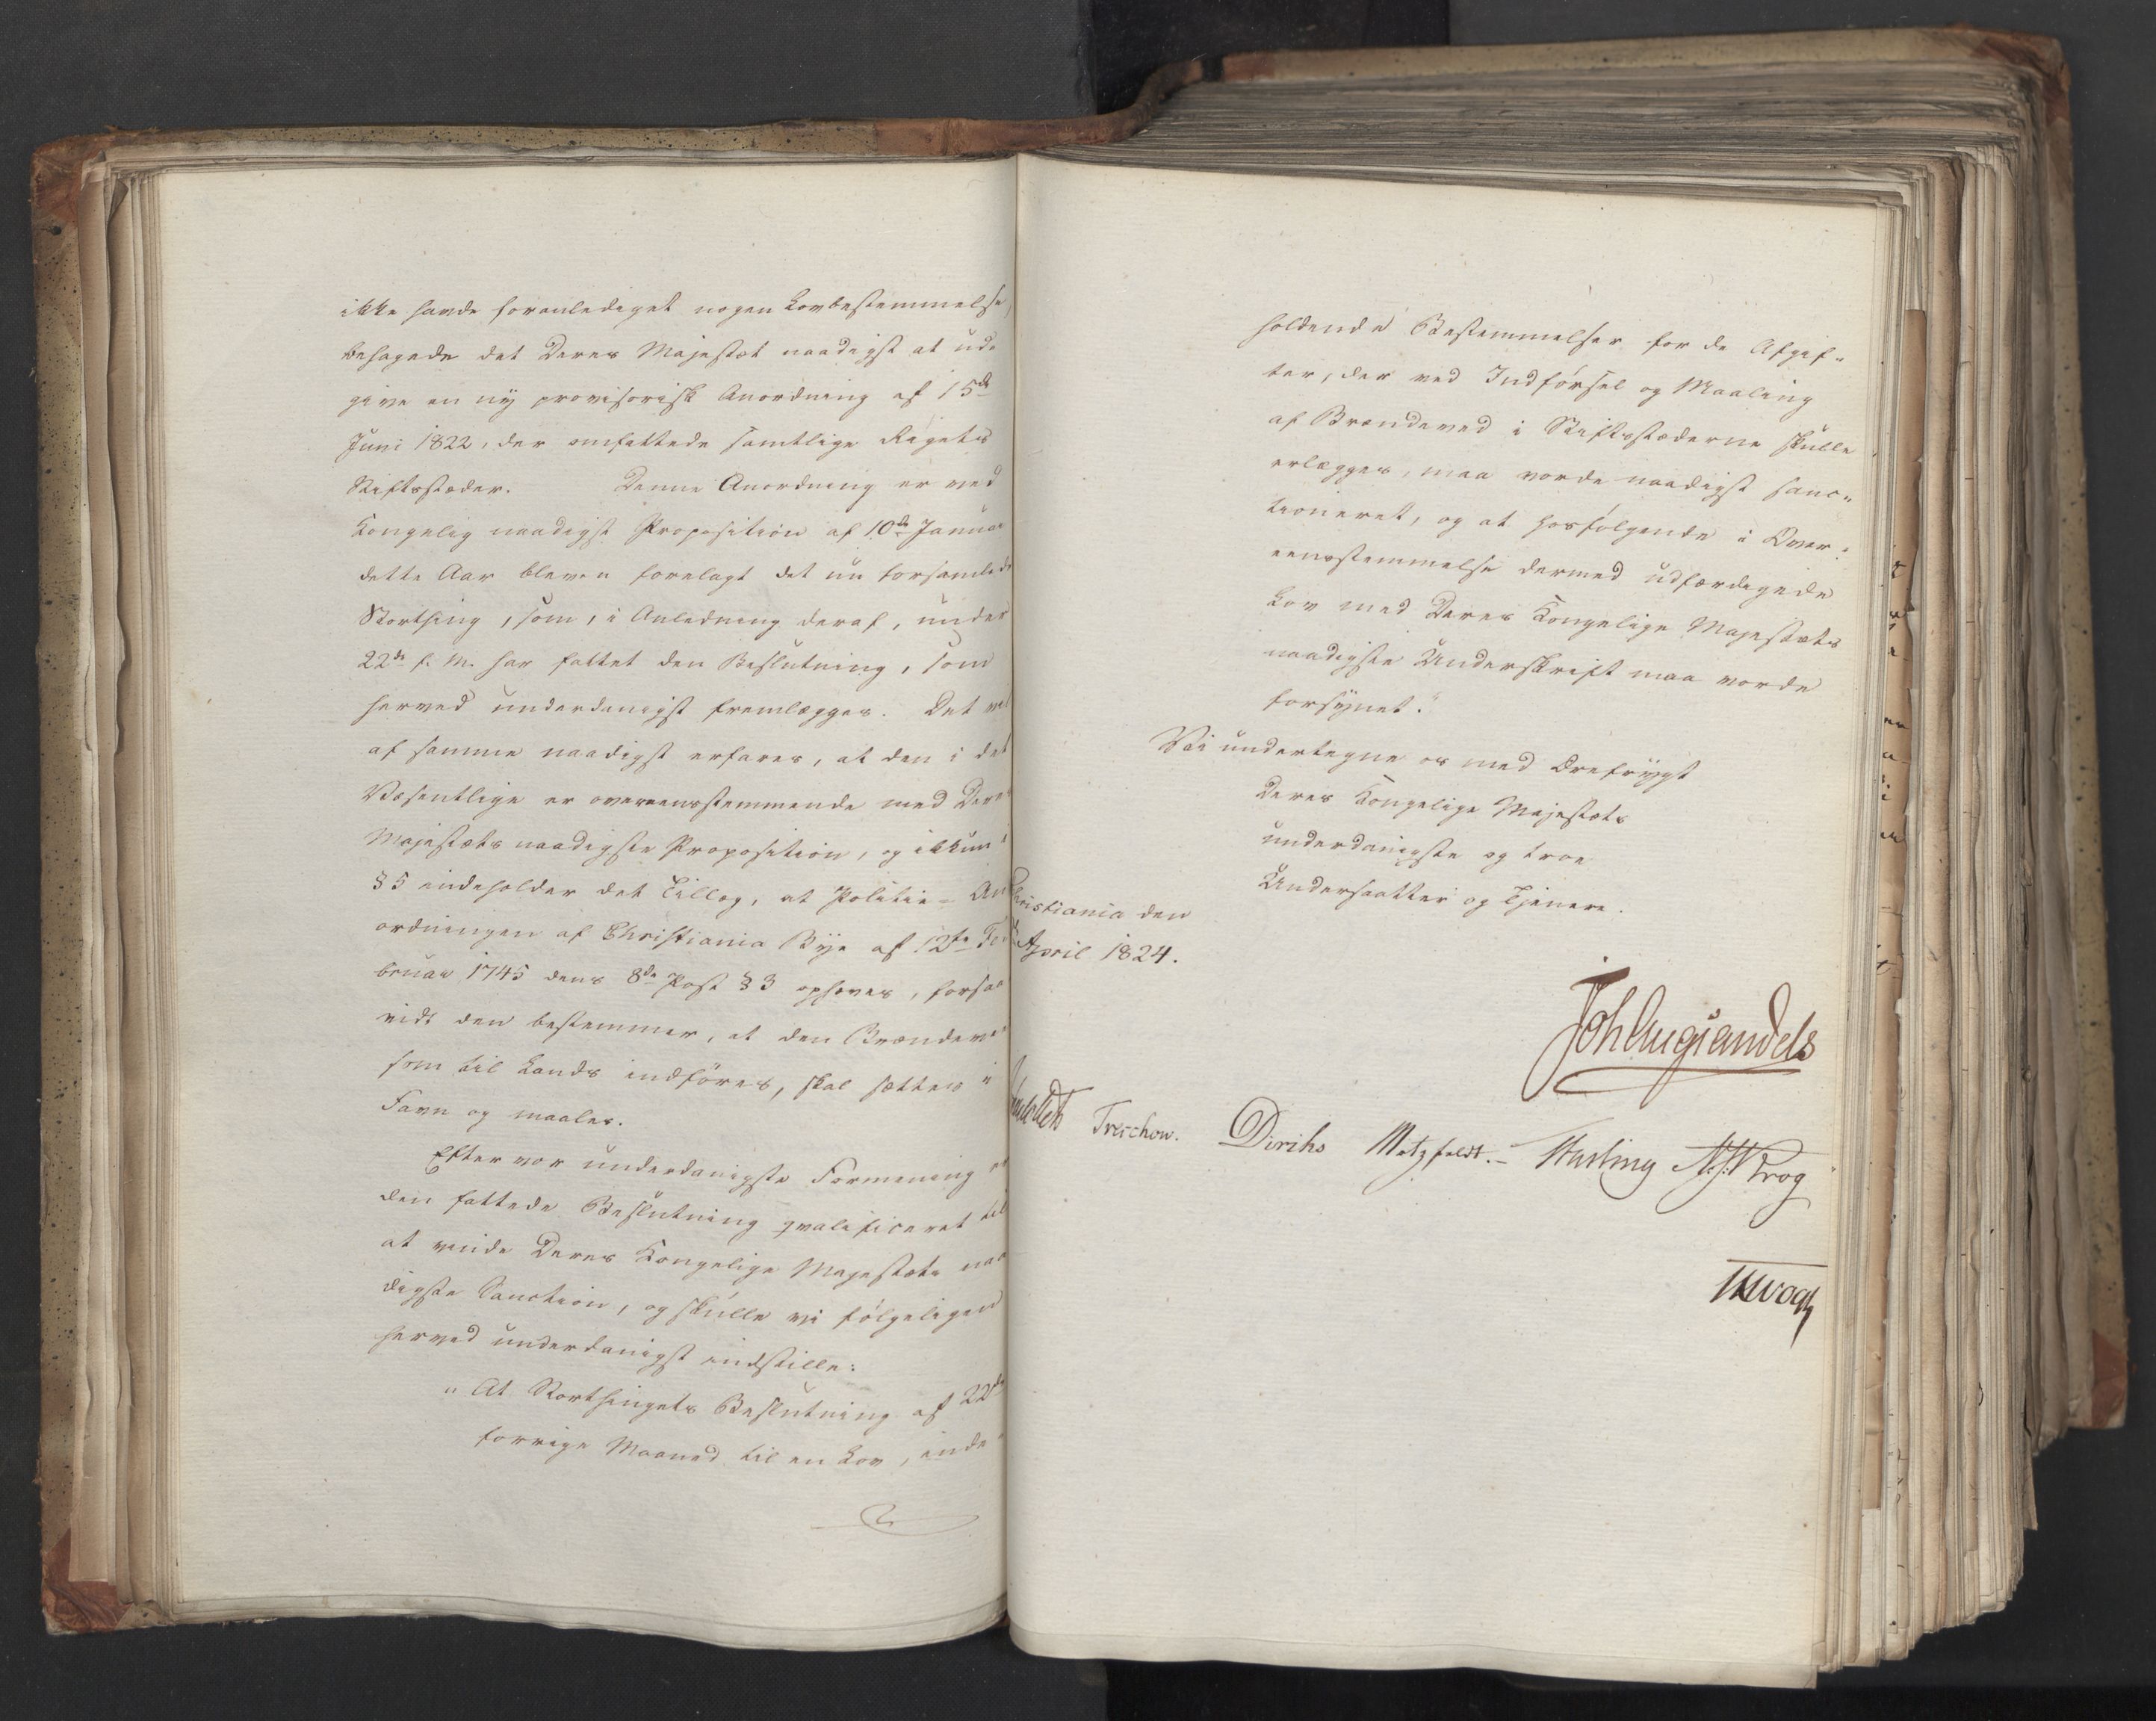 ikke havde foranlediget nogen Lovbestemmelse,
behagede det Deres Majestæt naadigst at ud-
give en ny provisorisk Anordning af 15de
Juni 1822, der omfattede samtlige Rigets
Stiftsstæder. Denne Anordning er ved
Kongelig naadigst Proposition af 10de Januar
dette Aar bleven forelagt det nu forsamlede
Storthing, som, i Anledning deraf, under
22de f. M. har fattet den Beslutning, som
herved underdanigst fremlægges. Det vil
af samme naadigst erfares, at den i det
Væsentlige er overeensstemmende med Deres
Majestæts naadigste Proposition, og ikkun i
§ 5 indeholder det Tillæg, at Politie-An
ordningen af Christiania Bye af 12te Fe
bruar 1745 dens 8de Post § 3 ophæves, forsaa
vidt den bestemmer, at den Brændeved
som til Lands indføres, skal sættes i
Favn og maales.
Efter vor underdanigste Formening er
den fattede Beslutning qvalificeret til
at vinde Deres Kongelige Majestæts naa
digste Sanction, og skulle vi følgeligen
herved underdanigst indstille:
"At Storthingets Beslutning af 22de
forrige Maaned til en Lov, inde-
holdende Bestemmelser for de Afgif-
ter, der ved Indførsel og Maaling
af Brændeved i Stiftsstæderne skulle
erlægges, maa vorde naadigst sanc-
tioneret, og at hosfølgende i Over-
eensstemmelse dermed udfærdigede
Lov med Deres Kongelige Majestæts
naadigste Underskrift maa vorde
forsynet."
Vi undertegne os med Ærefrygt
Deres Kongelige Majestæts
underdanigste og troe
Undersaatter og Tjenere.
Christiania den
April 1824.
Joh Aug Sandels
Treschow. Diriks Motzfeldt. Krog